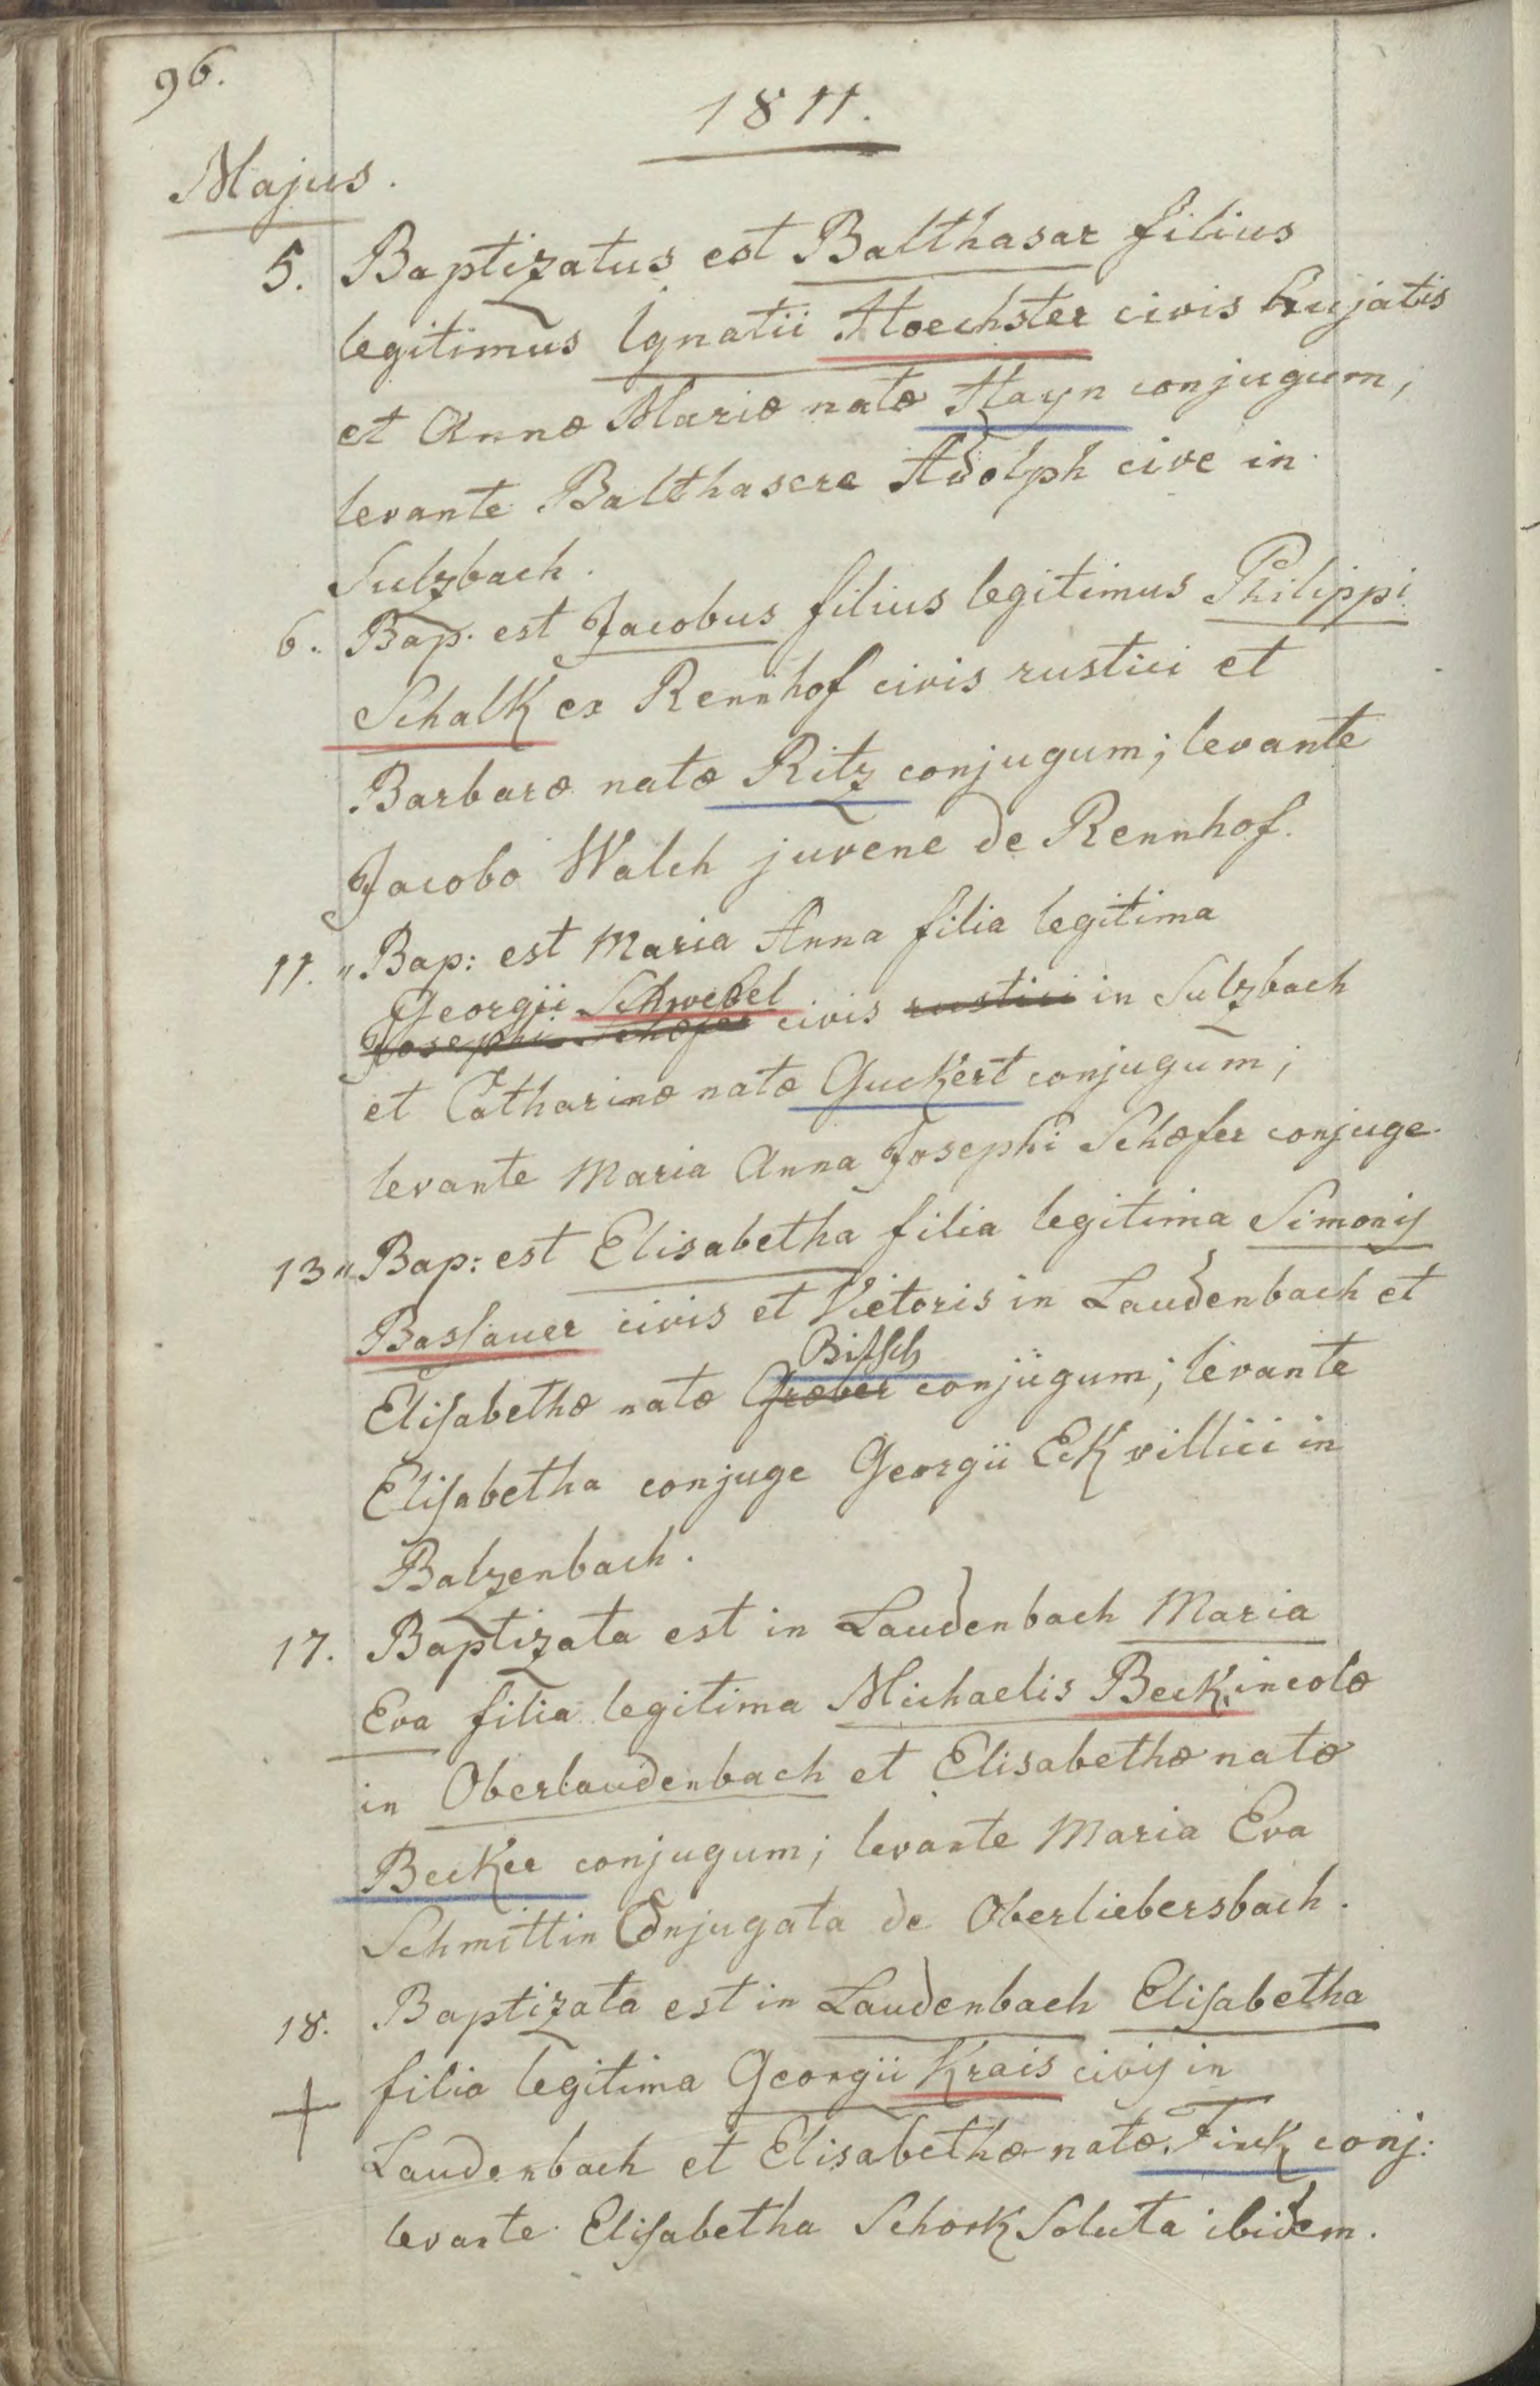 96.
1811.
Majus.
5. Baptizatus est Balthasar filius
legitimus Ignatii Hoechster civis hujatis
et Annæ Mariæ natæ Hayn conjugum,
levante Balthasere Adolph cive in
Sulzbach.
6. Bap. est Jacobus filius legitimus Philippi
Schalk ex Rennhof civis rustici et
Barbaræ natæ Ritz conjugum; levante
Jacobo Walch juvene de Rennhof.
11. " Bap: est Maria Anna filia legitima
Georgii Schwebel
Josephi Schæfer civis rustici in Sulzbach
et Catharinæ natæ Guckert conjugum;
levante Maria Anna Josephi Schæfer conjuge.
13 " Bap: est Elisabetha filia legitima Simonis
Baslauer civis et Vietoris in Laudenbach et
Bitsch
Elisabethæ natæ Græber conjugum; levante
Elisabetha conjuge Georgii Eck villici in
Balzenbach.
17. Baptizata est in Laudenbach Maria
Eva filia legitima Michaelis Beck, incolæ
in Oberlaudenbach et Elisabethæ natæ
Becker conjugum; levante Maria Eva
Schmittin Conjugata de Oberliebersbach.
18. Baptizata est in Laudenbach Elisabetha
+ filia legitima Georgii Krais civis in
Laudenbach et Elisabethæ natæ Finck conj:
levante Elisabetha Schork Soluta ibidem.